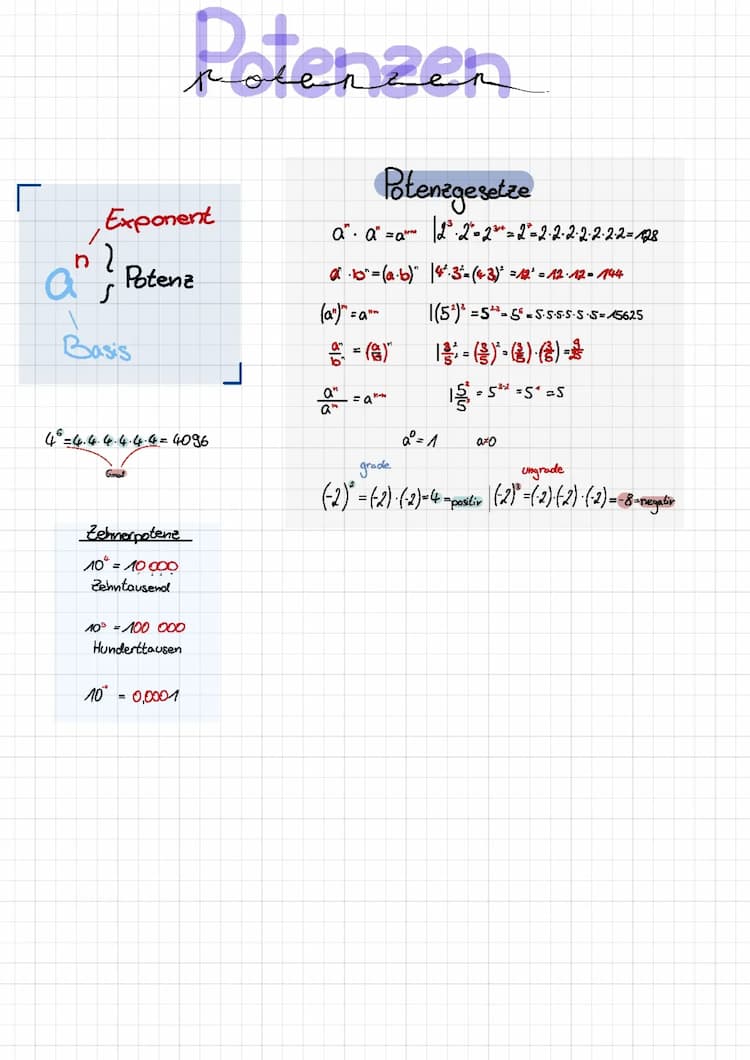 Potenzen
potenzen
Exponent
aⁿ } Potenz
Basis
4⁶=4·4·4·4·4·4=4096
6mal
Zehnerpotenz
10⁴ = 10 000
Zehntausend
10⁵ = 100 000
Hunderttausen
10⁻⁴ = 0,0001
Potenzgesetze
aⁿ · aᵐ = aⁿ⁺ᵐ |2³·2⁴=2³⁺⁴=2⁷=2·2·2·2·2·2·2=128
aⁿ·bⁿ=(a·b)ⁿ |4²·3²=(4·3)²=12²=12·12=144
(aⁿ)ᵐ=aⁿ·ᵐ |(5²)³=5²·³=5⁶=5·5·5·5·5·5=15625
aⁿ/bⁿ = (a/b)ⁿ |3²/5²=(3/5)²=(3/5)·(3/5)=9/25
aⁿ/aᵐ = aⁿ⁻ᵐ
a⁰=1 a≠0
grade ungrade
(-2)²=(-2)·(-2)=4=positiv |(-2)³=(-2)·(-2)·(-2)=-8=negativ